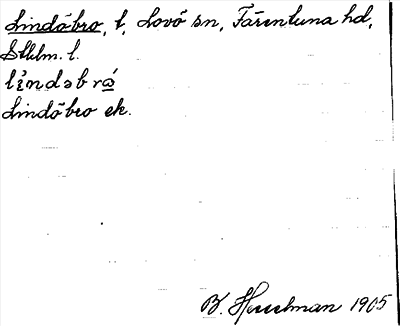 Lindöbro, t, Lovö sn, Färentuna hd,
Stklm. l.
lindəbrá
Lindöbro ek.
B. Hesselman 1905